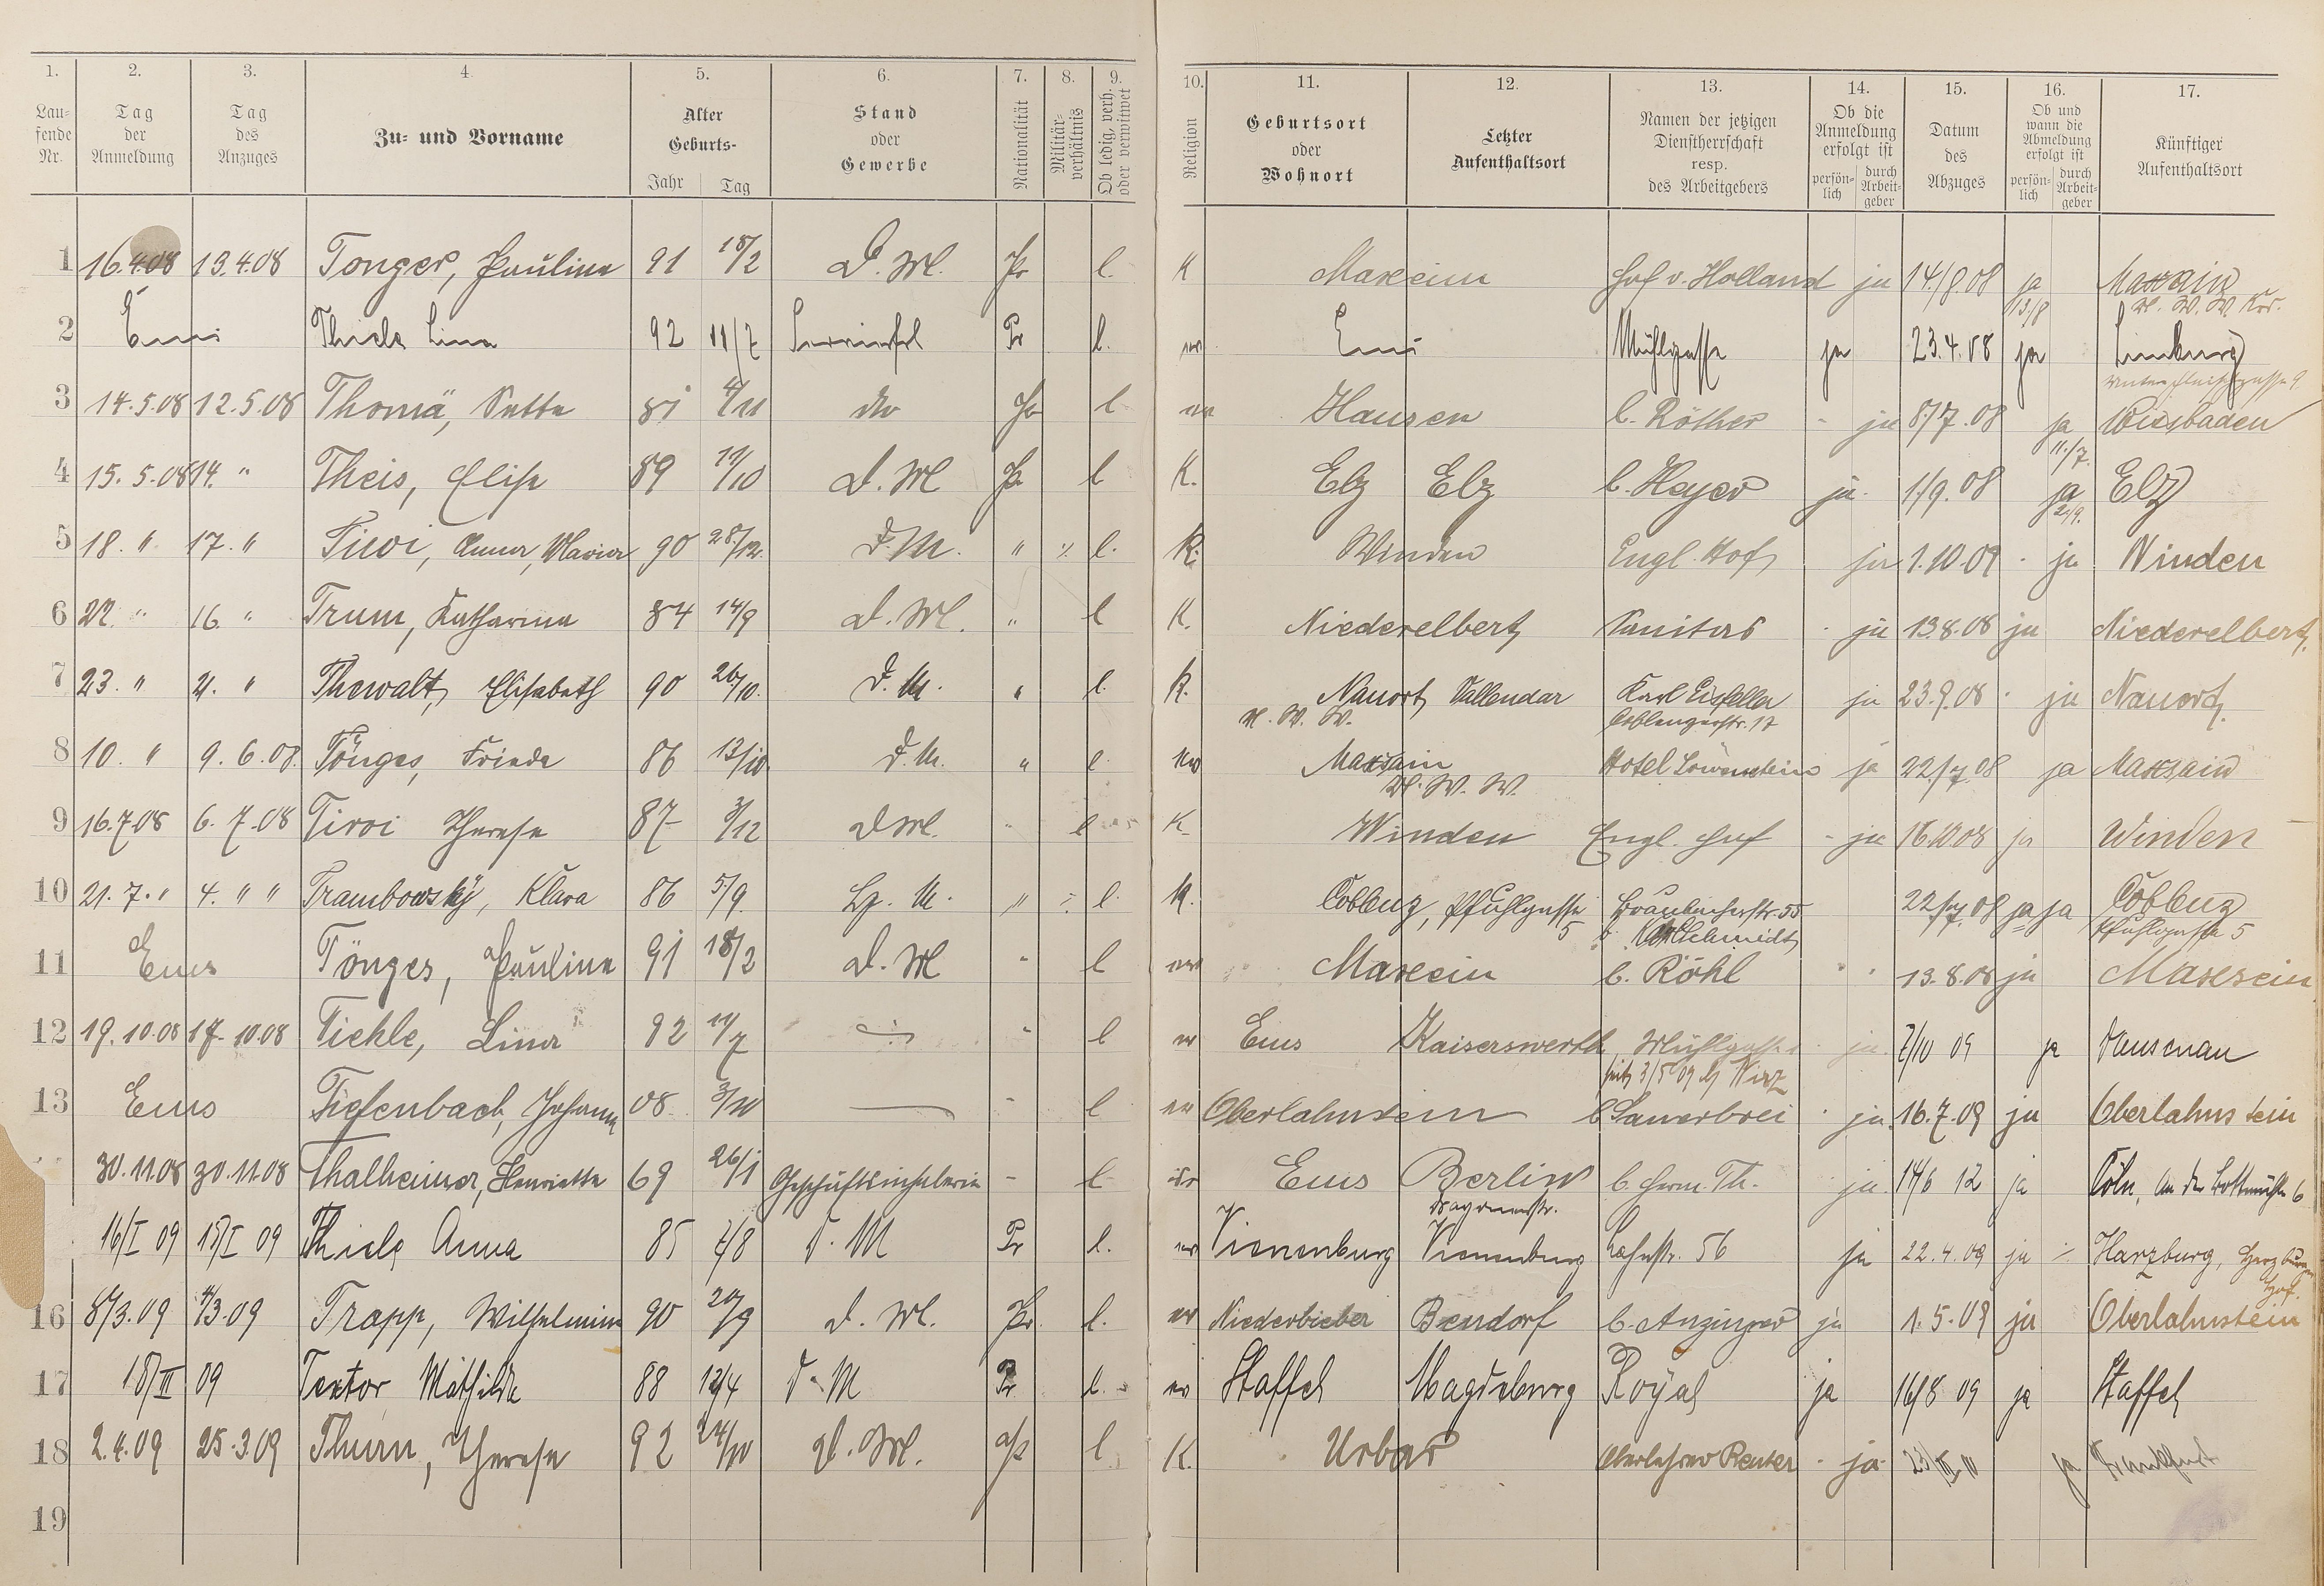 1. 2. 3. 4. 5. 6. 7. 8. 9. 10. 11. 12. 13. 14. 15. 16. 17.
Lau-
fende
Nr.
Tag
der
Anmeldung
Tag
des
Anzuges
Zu- und Vorname
Alter
Geburts-
Jahr Tag
Stand
oder
Gewerbe
Nationalität
Militär-
verhältnis
Ob ledig, verh.
oder verwitwet
Religion
Geburtsort
oder
Wohnort
Letzter
Aufenthaltsort
Namen der jetzigen
Dienstherrschaft
resp.
des Arbeitgebers
Ob die
Anmeldung
erfolgt ist
persön-
lich
durch
Arbeit-
geber
Datum
des
Abzuges
Ob und
wann die
Abmeldung
erfolgt ist
persön-
lich
durch
Arbeit-
geber
Künftiger
Aufenthaltsort
1 16.4.08 13.4.08 Tonges, Pauline 91 18/2 D. M. Pr l. K Maxein Hof v. Holland ja 14./8.08 ja Maxain
13/8 U. W. W. Kr.
2 Ems Thiele Lina 92 11/7 Pr l. ev Ems Mühlgasse ja 23.4.08 ja Limburg
3 14.5.08 12.5.08 Thomä, Sette 81 4/11 do Pr l ev Hausen b. Röther - ja 8/7.08 ja Wiesbaden
11./7.
4 15.5.08 14. " Theis, Elise 89 11/10 D. M Pr l K. Elz Elz b. Heyer ja. 1/9.08 ja Elz
2./9.
5 18. " 17. " Tiwi, Anna, Maria 90 28/12. D. M. " ./. l. K. Winden Engl. Hof ja 1.10.09 - ja Winden
6 22. " 16. " Trum, Katharina 84 14/9 D. M. " l K. Niederelbert Sanitas - ja 13.8.08 ja Niederelbert.
7 23. " 21. " Thewalt, Elisabeth 90 26/10. D. M. " l. K. Nauort, Vallendar Karl Eisfeller ja 23.9.08 - ja Nauort.
U. W. W. Coblenzerstr. 17
8 10. " 9. 6. 08. Tönges, Frieda 86 13/10 D. M. " l. ev Maxsain Hotel Löwenstein ja 22./7 08 ja Maxsain
U. W. W.
9 16.7.08 6. 7.08 Tiroi Therese 87 3/12 D M. " l K Winden Engl. Hof - ja 16.10.08 ja Winden
10 21. 7. " 4. " " Trambowsky, Klara 86 5/9. " ./. l. K. Coblenz, Pfuhlgasse Braubacherstr. 55 22/7 08 ja ja Coblenz
5 b. Karl Schmidt Pfuhlgasse 5
11 Ems Tönges, Pauline 91 18/2 D. M " l ev Maxein b. Röhl " 13.8.08 ja Maxsein
12 19.10.08 17.10.08 Tiehle, Lina 92 11/7 ./. " l ev Ems Kaiserswerth Mühlgasse ja. 7/10 09 ja Dausenau
seit 3/5 09 b. Wirz
13 Ems Tiefenbach, Johanna 08 3/10 - l ev Oberlahnstein b Sauerbrei - ja. 16.7.09 ja Oberlahnstein
30.11.08 30.11.08 Thalheimer, Henriette 69 26/1 Geschäftsinhaberin - l isr Ems Berlin b. Herm. Th. ja. 14/6 12 ja Cöln, An der Bottmühle 6
16/I 09 15/I 09 Thiele Anna 85 7/8 D. M Pr l. ev Vienenburg Vienenburg Lahnstr. 56 ja 22.4.09 ja ./. Harzburg, Harzburger
Hof.
16 8/3.09 4/3.09 Trapp, Wilhelmine 90 20/9 D. M. Pr. l. ev Niederbieber Bendorf b. Anzinger ja 1.5.09 ja Oberlahnstein
17 18/III 09 Textor Mathilde 88 12/4 D. M Pr. l. ev Staffel Magdeburg Royal ja 16/8 09 ja Staffel
18 2.4.09 25.3.09 Thurn, Therese 92 24/10 D. M. Pr l K. Urbar Oberlehrer Reuter - ja 23/III 10 ja Frankfurt
19